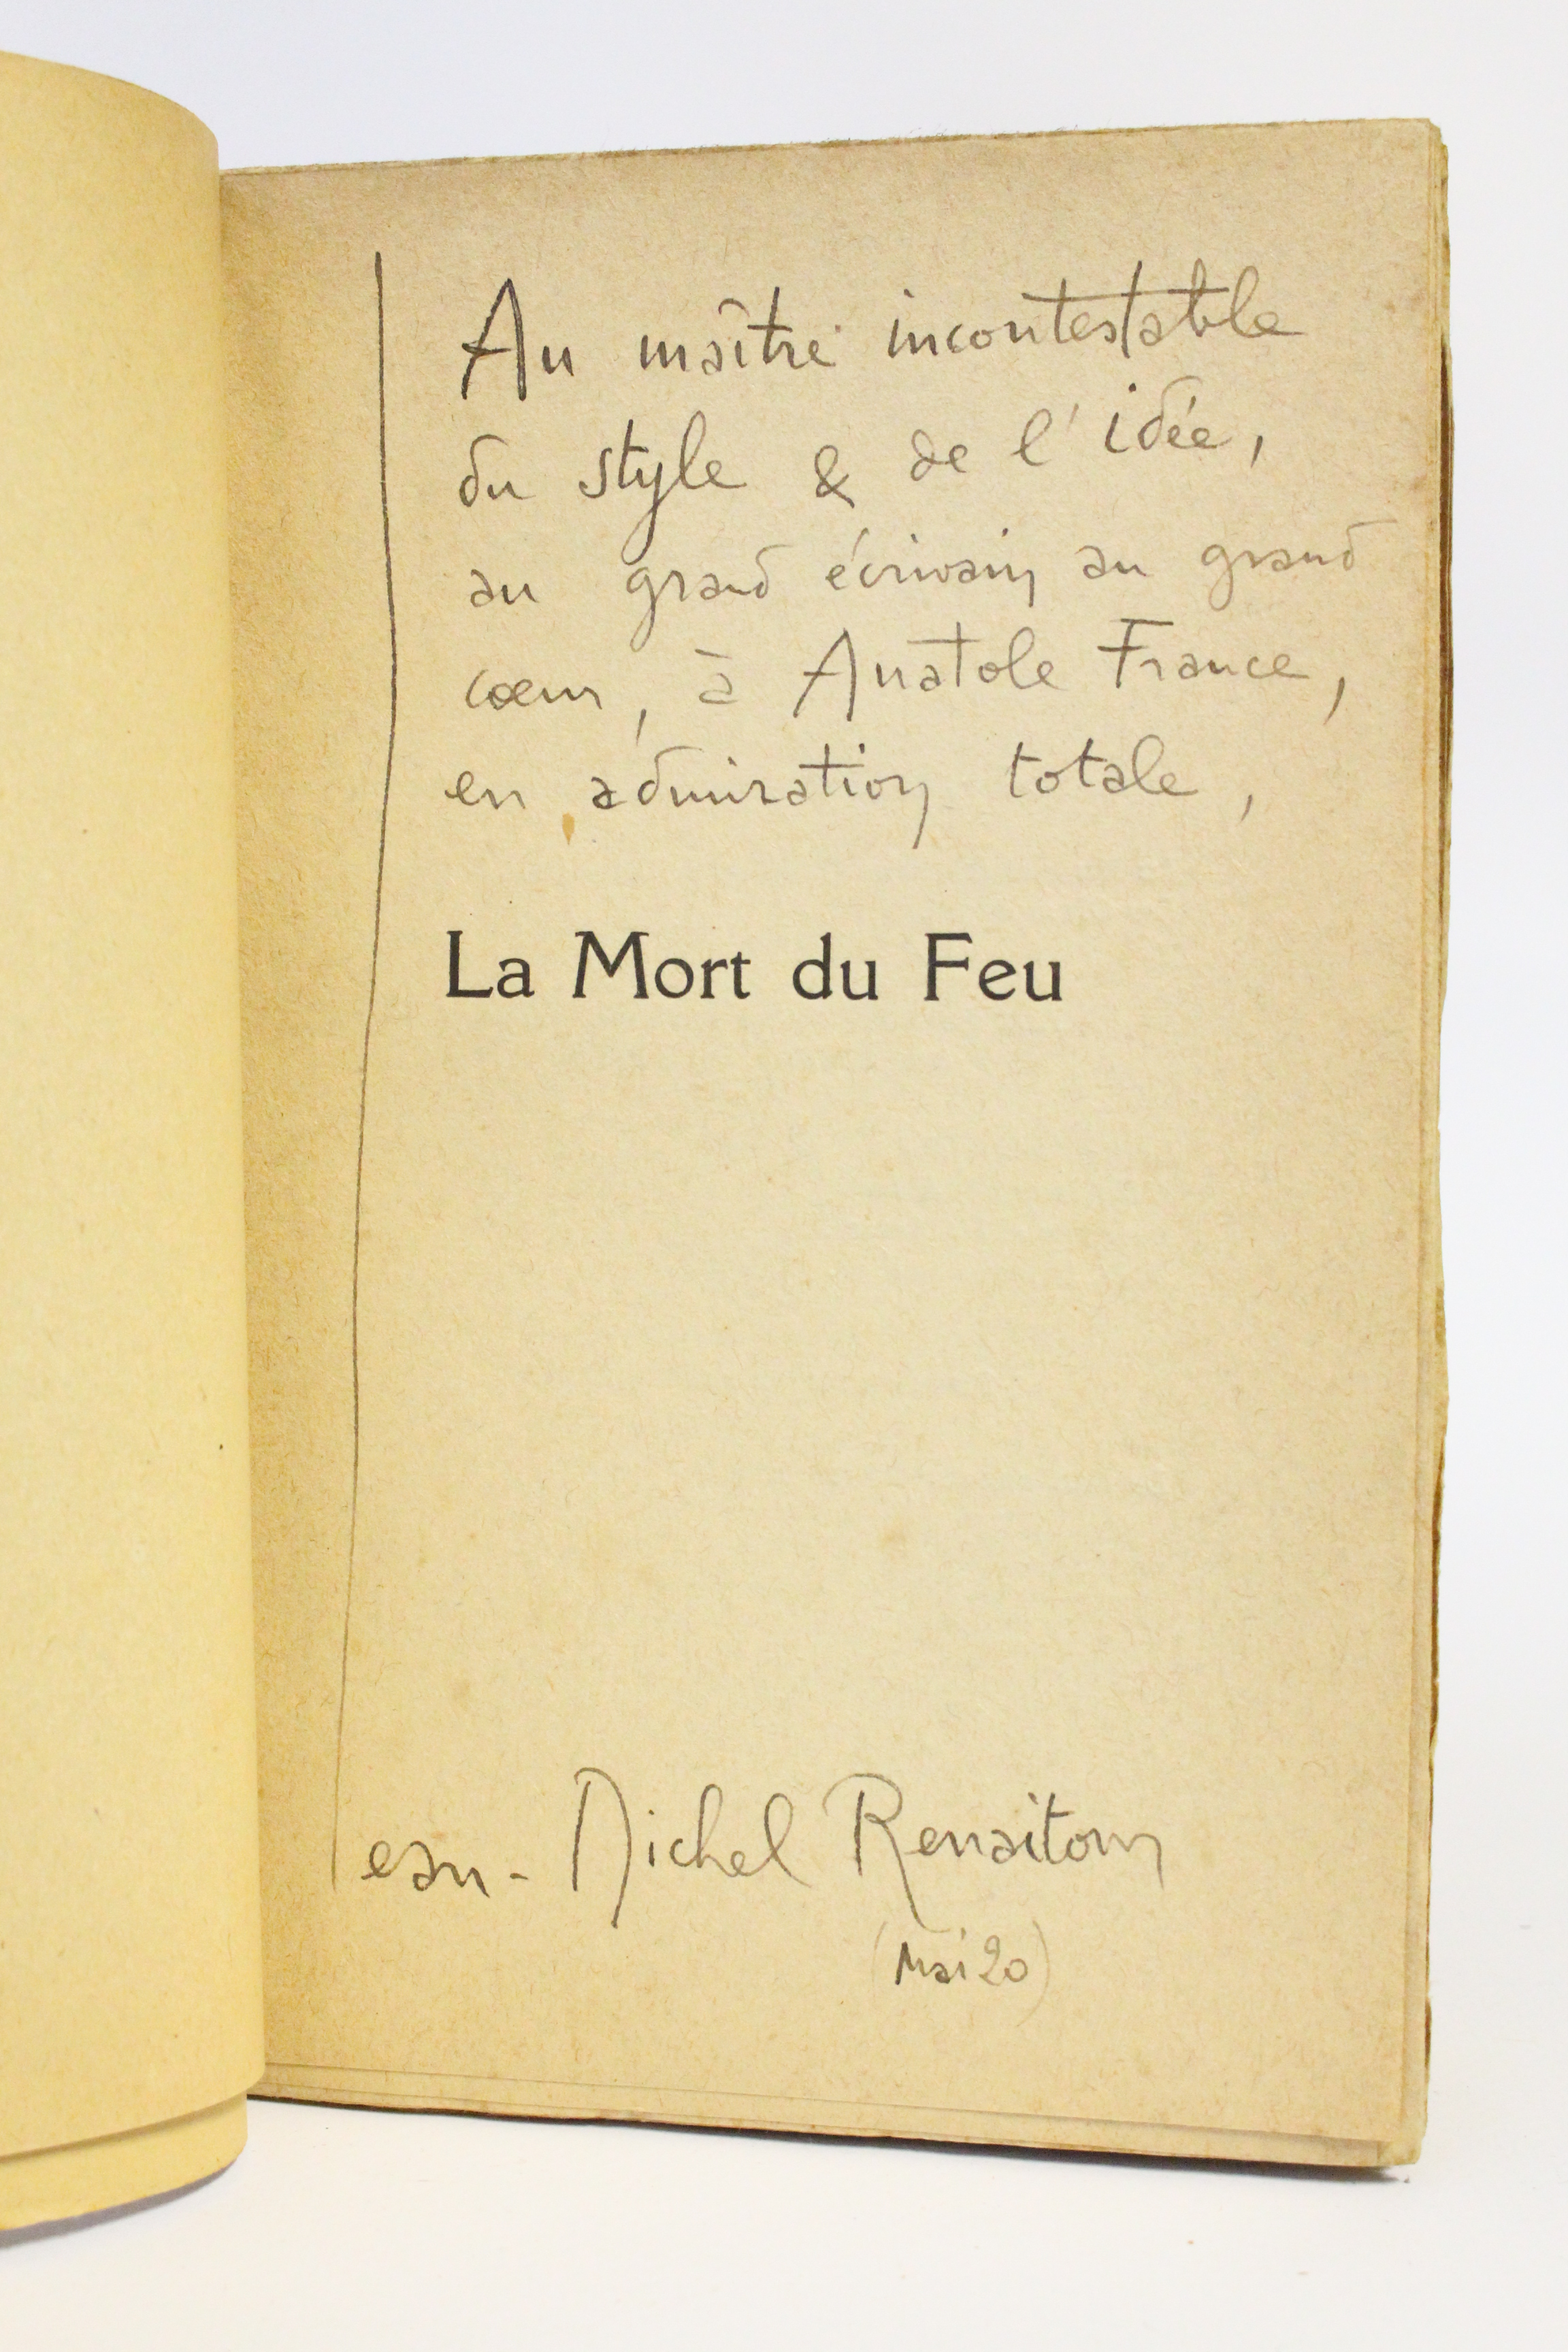 Au maître incontestable
du style & de l'idée,
au grand écrivain au grand
cœur, à Anatole France,
en admiration totale,
La Mort du Feu
Jean-Michel Renaitour
(Mai 20)